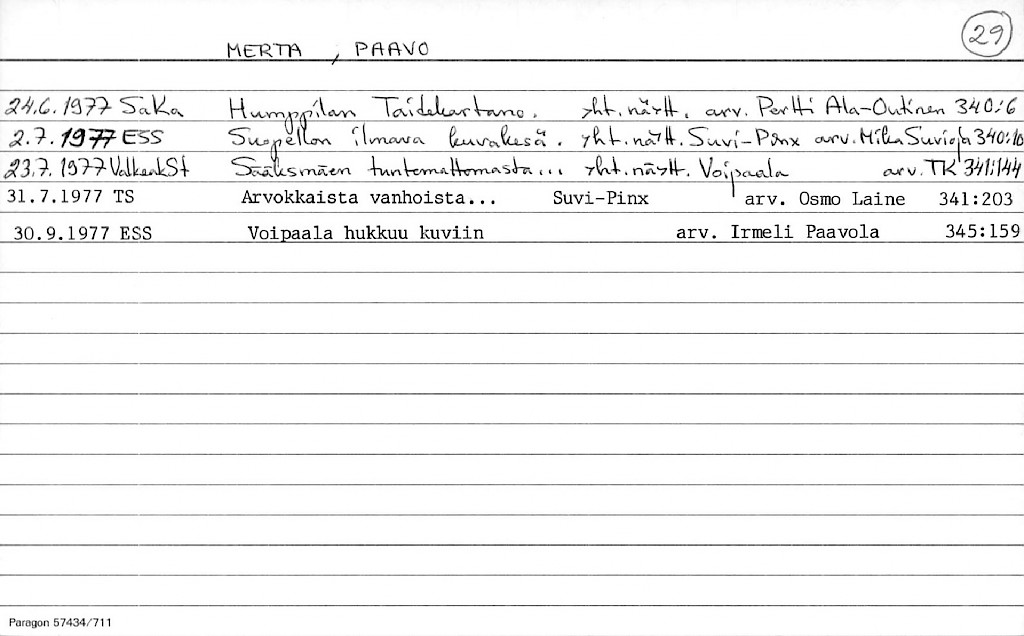 MERTA , PAAVO
29
24.6.1977 SaKa Humppilan Taidekartano. yht.näytt. arv. Pertti Ala-Outinen 340:6
2.7.1977 ESS Suopellon ilmava kuvakesä. yht.näytt. Suvi-Pinx arv. Mika Suvioja 340:10
23.7.1977 ValkeakSt Sääksmäen tuntemattomasta... yht.näytt. Voipaala arv. TK 341:144
31.7.1977 TS Arvokkaista vanhoista... Suvi-Pinx arv. Osmo Laine 341:203
30.9.1977 ESS Voipaala hukkuu kuviin arv. Irmeli Paavola 345:159
Paragon 57434/711